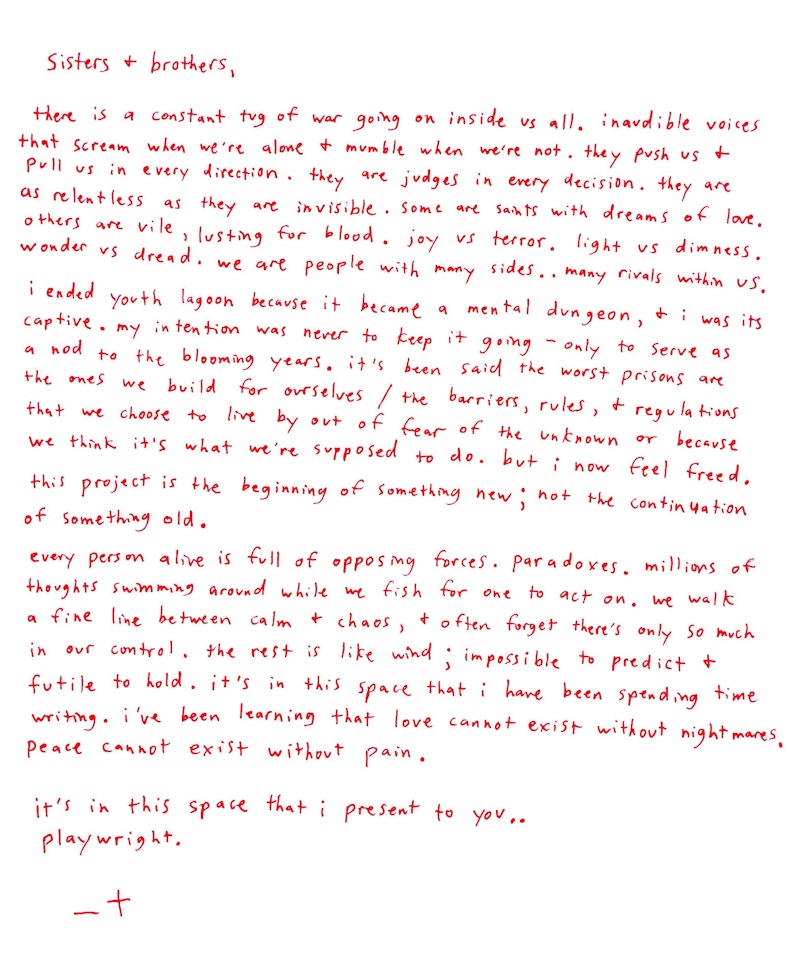 Sisters + brothers,
there is a constant tug of war going on inside us all. inaudible voices
that scream when we're alone + mumble when we're not. they push us +
pull us in every direction. they are judges in every decision. they are
as relentless as they are invisible. some are saints with dreams of love.
others are vile, lusting for blood. joy vs terror. light vs dimness.
wonder vs dread. we are people with many sides.. many rivals within us.
i ended youth lagoon because it became a mental dungeon, + i was its
captive. my intention was never to keep it going - only to serve as
a nod to the blooming years. it's been said the worst prisons are
the ones we build for ourselves / the barriers, rules, + regulations
that we choose to live by out of fear of the unknown or because
we think it's what we're supposed to do. but i now feel freed.
this project is the beginning of something new; not the continuation
of something old.
every person alive is full of opposing forces. paradoxes. millions of
thoughts swimming around while we fish for one to act on. we walk
a fine line between calm + chaos, + often forget there's only so much
in our control. the rest is like wind; impossible to predict +
futile to hold. it's in this space that i have been spending time
writing. i've been learning that love cannot exist without nightmares.
peace cannot exist without pain.
it's in this space that i present to you..
playwright.
_ +